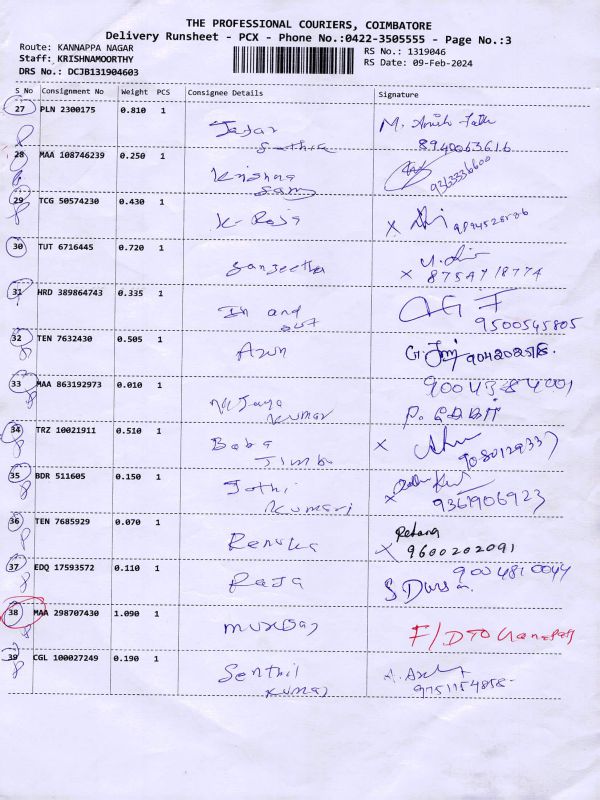 THE PROFESSIONAL COURIERS, COIMBATORE
Delivery Runsheet - PCX - Phone No.:0422-3505555 - Page No.:3
Route: KANNAPPA NAGAR
RS No.: 1319046
Staff: KRISHNAMOORTHY
RS Date: 09-Feb-2024
DRS No.: DCJB131904603
S No Consignment No Weight PCS Consignee Details Signature
27 PLN 2300175 0.810 1
8940063616
28 MAA 108746239 0.250 1 Krishna
Samy 9363336600
29 TCG 50574230 0.430 1 K-Raja
30 TUT 6716445 0.720 1 Sangeetha
8754718774
31 HRD 389864743 0.335 1 In and
out 9500545805
32 TEN 7632430 0.505 1 Arun
33 MAA 863192973 0.010 1 Jaya
Kumar
34 TRZ 10021911 0.510 1 Baba
Jimba
35 BDR 511605 0.150 1 Jothi
Kumari 9361906923
36 TEN 7685929 0.070 1 Renuka
X 9600202091
37 EDQ 17593572 0.110 1 Raja 9004810044
38 MAA 298707430 1.090 1 F/D TO
39 CGL 100027249 0.190 1 Senthil
Kumar 9751154858